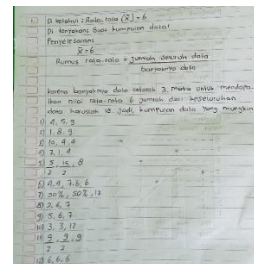 Diketahui : Rata-rata (x̄) = 6
Ditanyakan : Buat kumpulan data!
Penyelesaian
x̄ = 6
Rumus rata-rata = jumlah seluruh data
banyaknya data
karena banyaknya data adalah 3, maka untuk mendapa
tkan nilai rata-rata 6 jumlah dari keseluruhan
data haruslah 18. Jadi, kumpulan data yang mungkin
1) 4, 5, 9
2) 1, 8, 9
3) 10, 4, 4
5) 5, 15, 8
2 2
8) 2, 9, 7
9) 5, 6, 7
10) 3, 3, 12
11) 9, 9, 9
2 2
12) 6, 6, 6